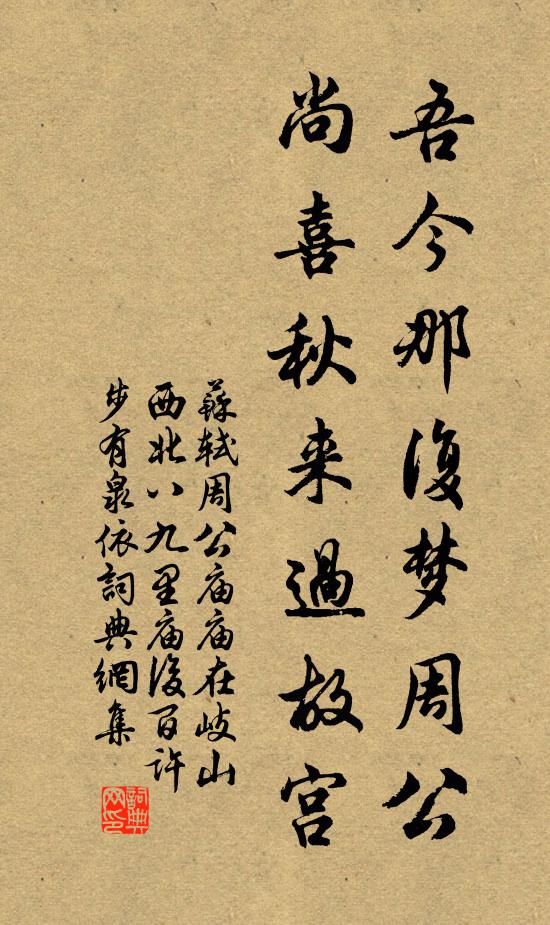 吾今那復梦周公
尚喜秋来過故宮
蘇軾周公庙庙在岐山
西北八九里庙後百许
步有泉依詞典網集
詞典网印